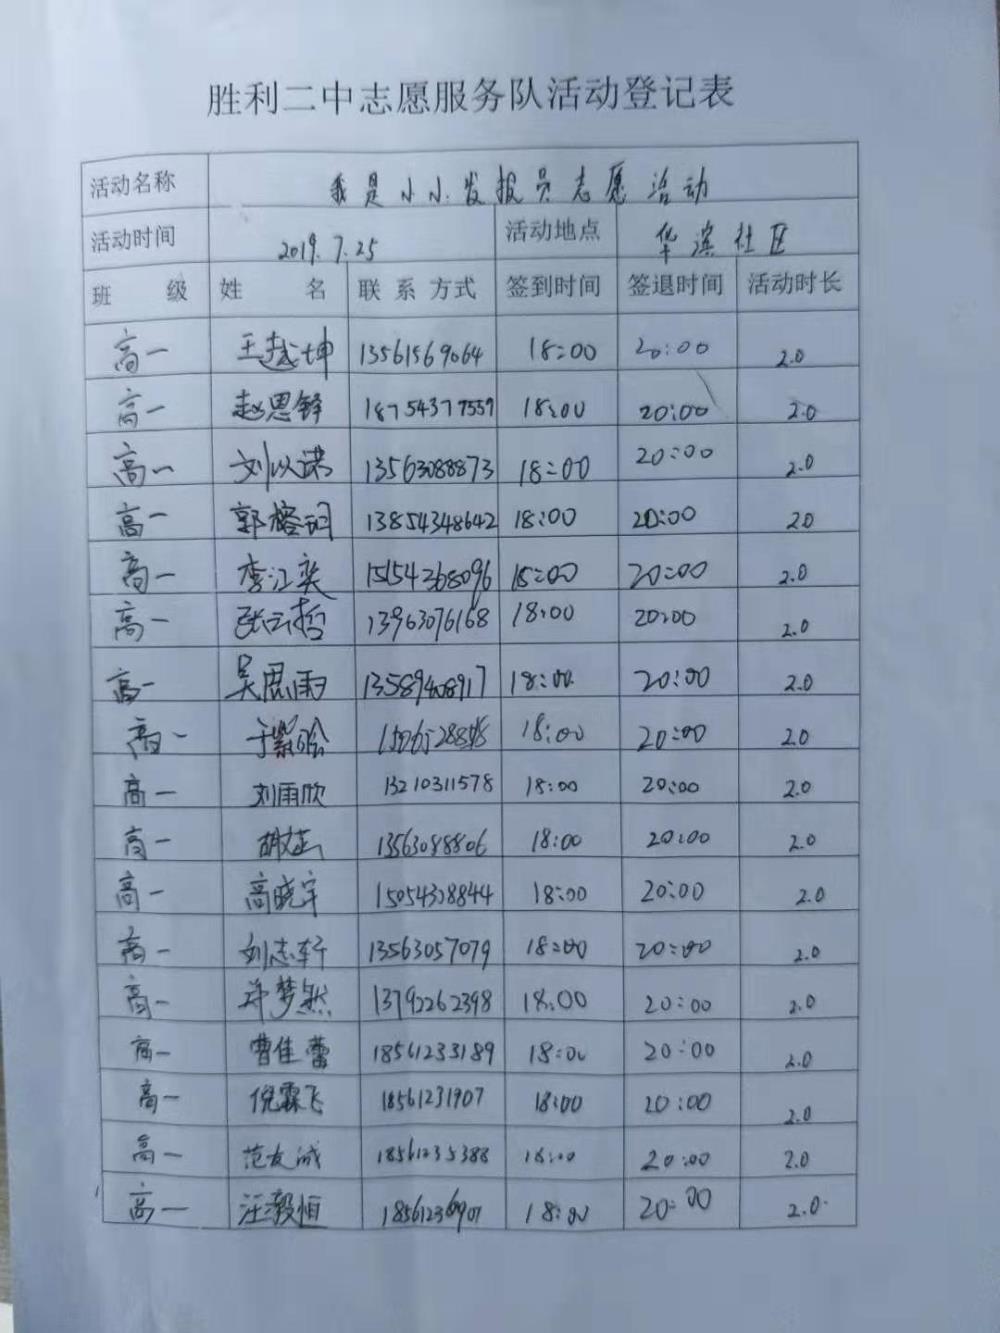 胜利二中志愿服务队活动登记表
活动名称 我是小小发报员志愿活动
活动时间 2019.7.25 活动地点 华滨社区
班 级 姓 名 联系方式 签到时间 签退时间 活动时长
高一 王越坤 13561569064 18:00 20:00 2.0
高一 赵思铎 18754377559 18:00 20:00 2.0
高一 刘以诺 13563088873 18:00 20:00 2.0
高一 郭榕玥 13854348642 18:00 20:00 20
高一 李江奕 15154268096 18:00 20:00 2.0
高一 张云哲 13963076168 18:00 20:00 2.0
高一 吴思雨 13589408917 18:00 20:00 2.0
高一 于紫晗 18:00 20:00 2.0
高一 刘雨欣 13210311578 18:00 20:00 2.0
高一 胡文 13563088806 18:00 20:00 2.0
高一 高晓宇 15054308844 18:00 20:00 2.0
高一 刘志轩 13563057079 18:00 20:00 2.0
高一 许梦然 13792262398 18:00 20:00 2.0
高一 曹佳蕾 18561233189 18:00 20:00 2.0
高一 倪霖飞 18561231907 18:00 20:00 2.0
高一 范友诚 18561235388 18:00 20:00 2.0
高一 汪毅恒 18:00 20:00 2.0